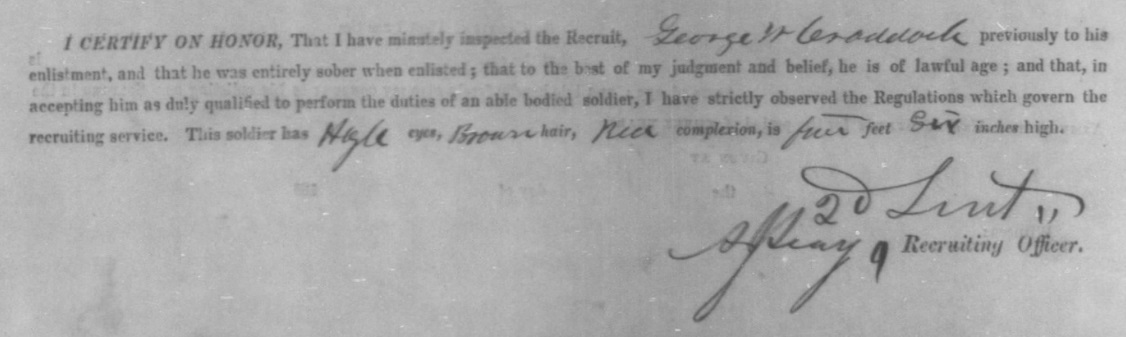 I CERTIFY ON HONOR, That I have minutely inspected the Recruit, George W Craddock previously to his
enlistment, and that he was entirely sober when enlisted ; that to the best of my judgment and belief, he is of lawful age ; and that, in
accepting him as duly qualified to perform the duties of an able bodied soldier, I have strictly observed the Regulations which govern the
recruiting service. This soldier has Hyle eyes, Brown hair, complexion, is five feet Six inches high.
2D Leut
Recruiting Officer.